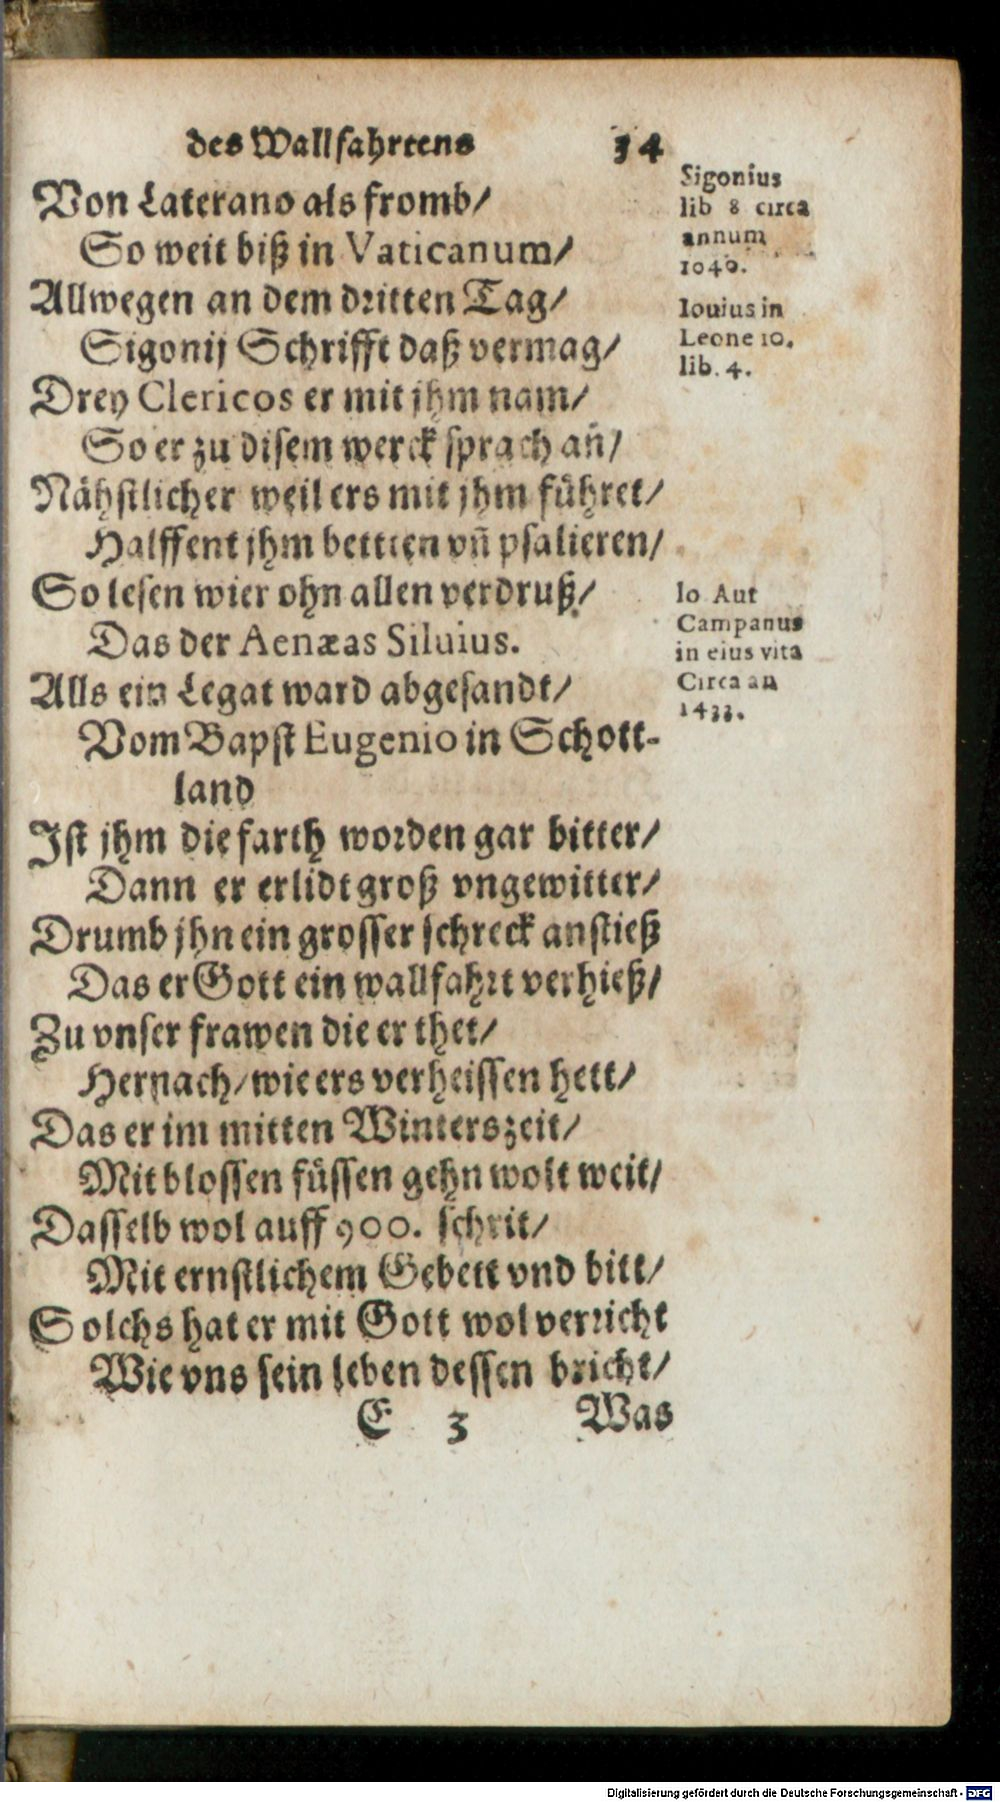 des Wallfahrtens 34
Von Laterano als fromb/
So weit biß in Vaticanum/
Allwegen an dem dritten Tag/
Sigonij Schrifft daß vermag/
Drey Clericos er mit jhm nam/
So er zu disem werck sprach an̄/
Nähstlicher weil ers mit jhm führet/
Halffent jhm bettten vn̄ psalieren/
So lesen wier ohn allen verdruß/
Das der Aenæas Siluius.
Alls ein Legat ward abgesandt/
Vom Bapst Eugenio in Schott-
land
Ist jhm die farth worden gar bitter/
Dann er erlidt groß vngewitter/
Drumb jhn ein grosser schreck anstieß
Das er Gott ein wallfahrt verhieß/
Zu vnser frawen die er thet/
Hernach/ wie ers verheissen hett/
Das er im mitten Winterszeit/
Mit blossen füssen gehn wolt weit/
Dasselb wol auff 900. schrit/
Mit ernstlichem Gebett vnd bitt/
Solchs hat er mit Gott wol verricht
Wie vns sein leben dessen bricht/
E 3 Was
Sigonius
lib 8 circa
annum
1040.
Iouius in
Leone 10.
lib. 4.
Io Aut
Campanus
in eius vita
Circa an
1433.
Digitalisierung gefördert durch die Deutsche Forschungsgemeinschaft - DFG